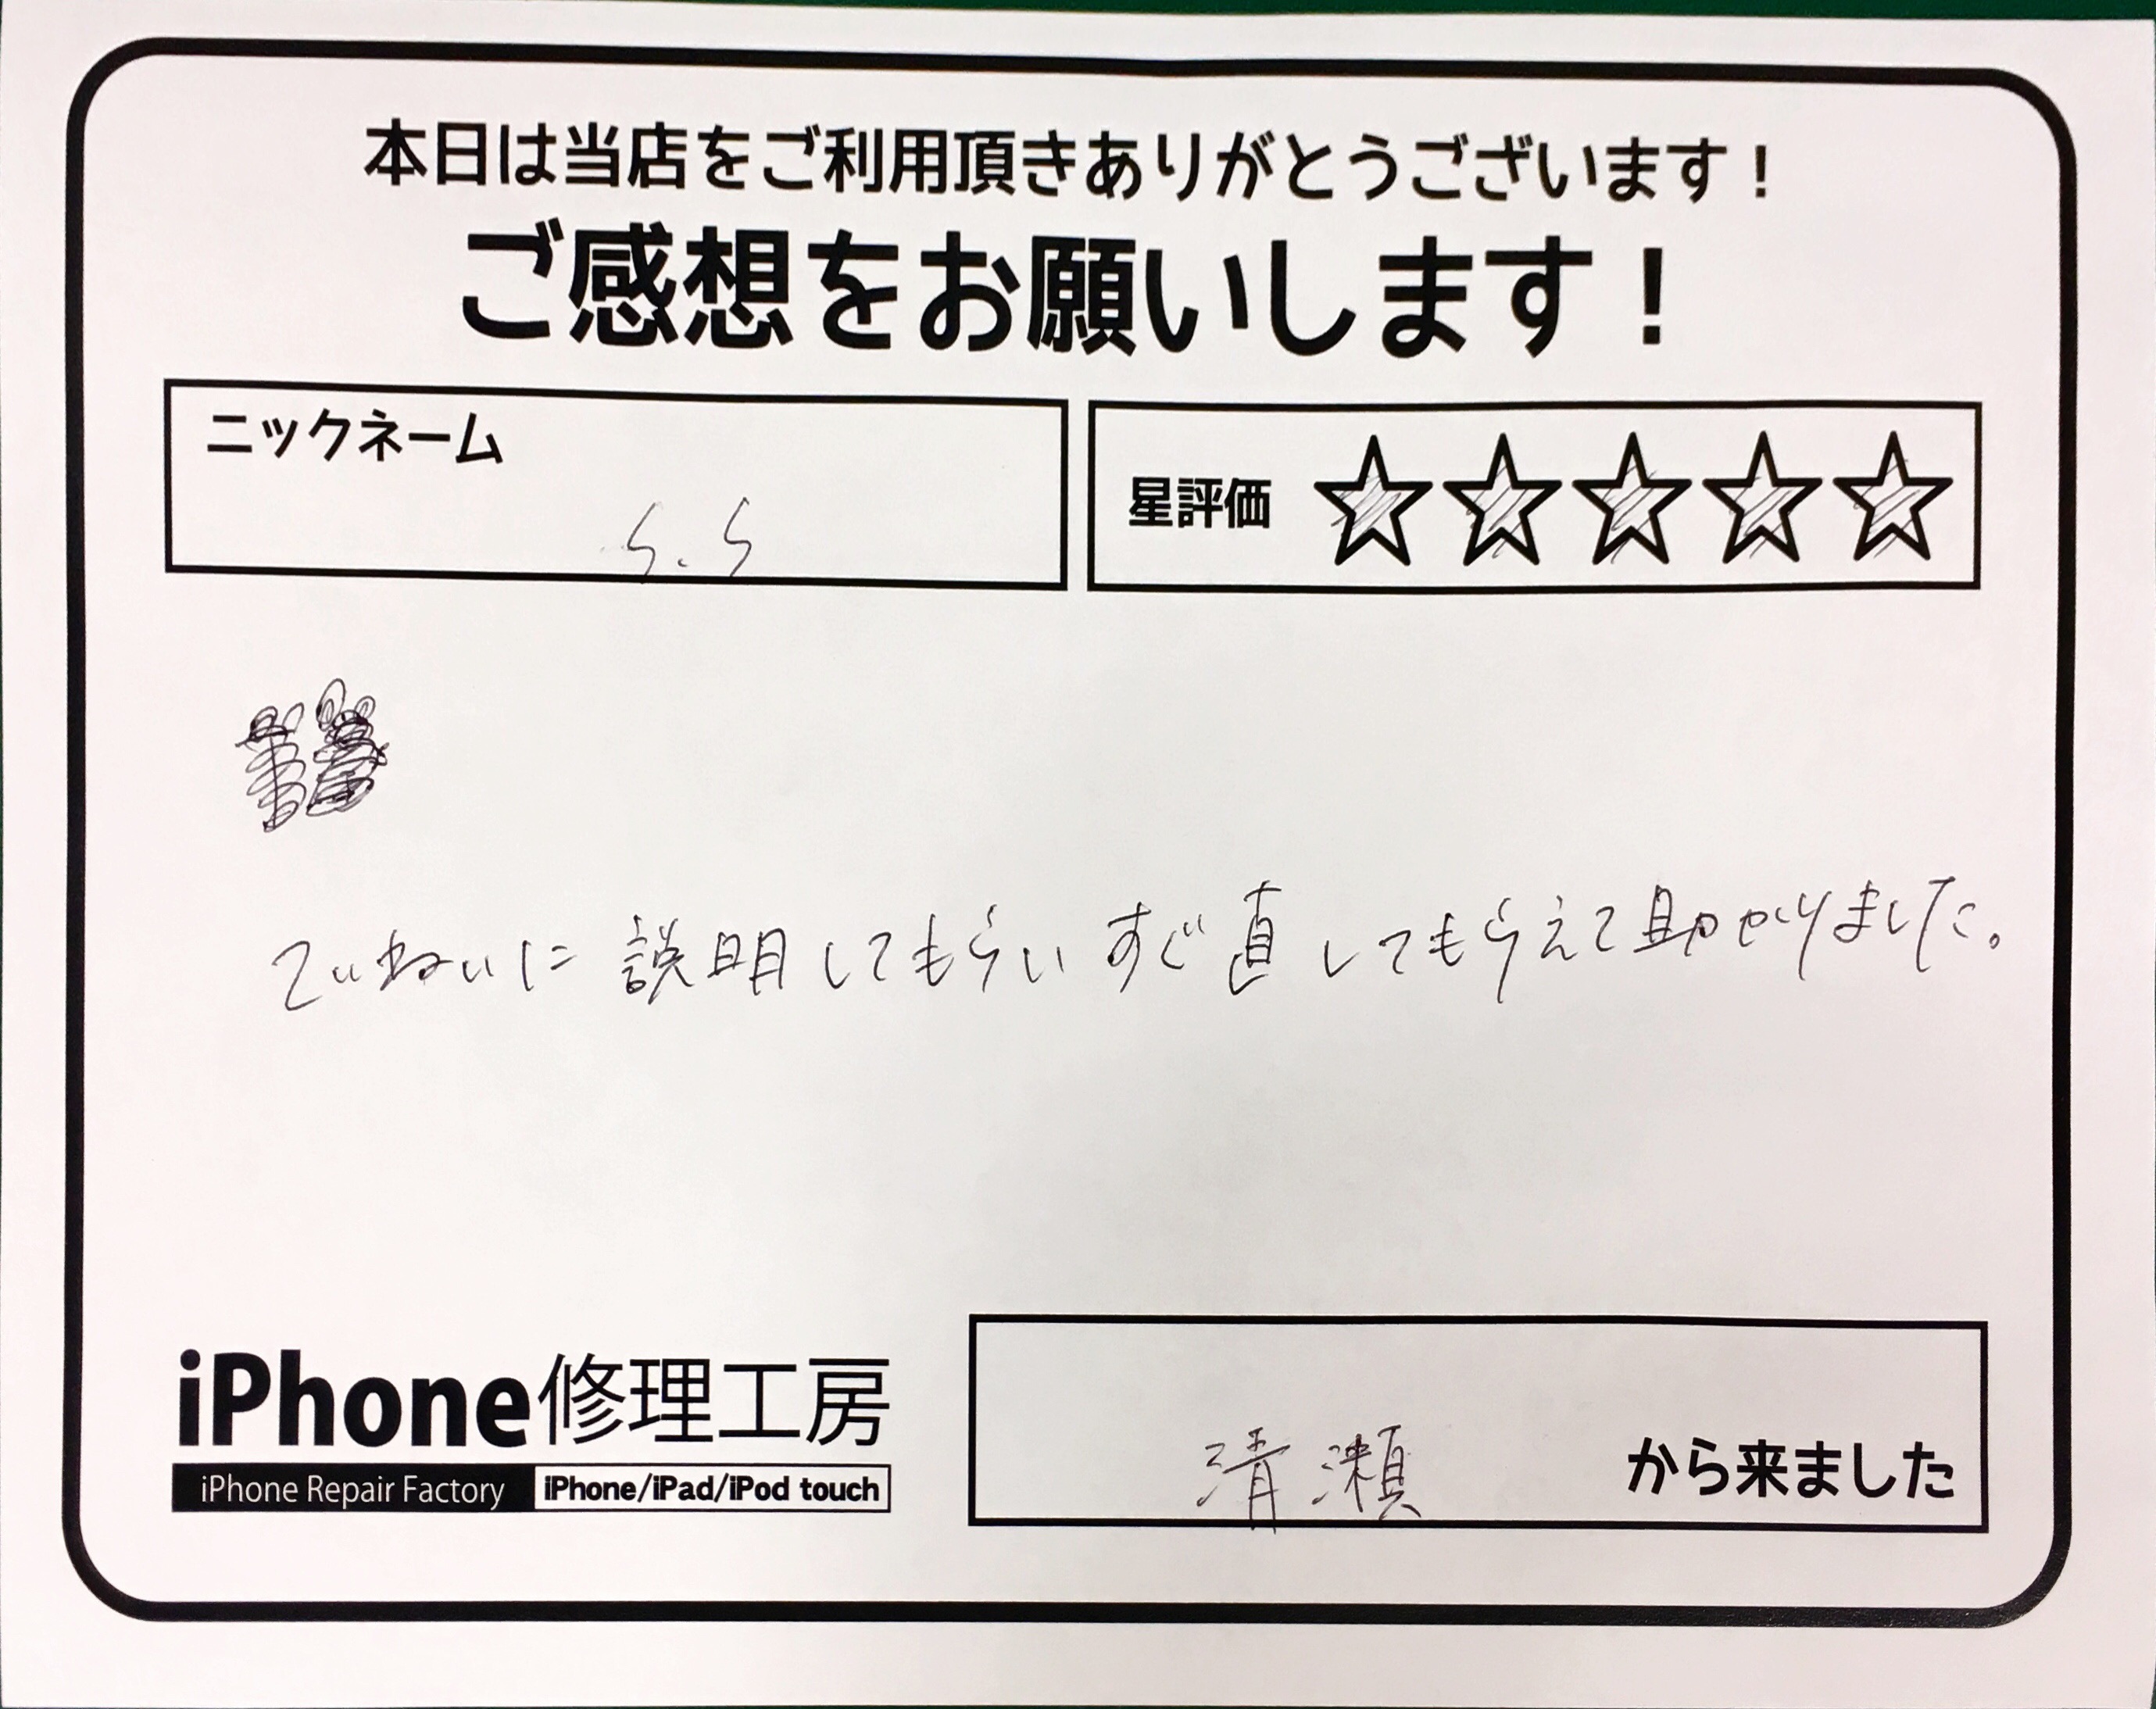 本日は当店をご利用頂きありがとうございます！
ご感想をお願いします！
ニックネーム
S.S
星評価 ☆☆☆☆☆
ていねいに説明してもらいすぐ直してもらえて助かりました。
iPhone修理工房
iPhone Repair Factory iPhone/iPad/iPod touch
清瀬 から来ました